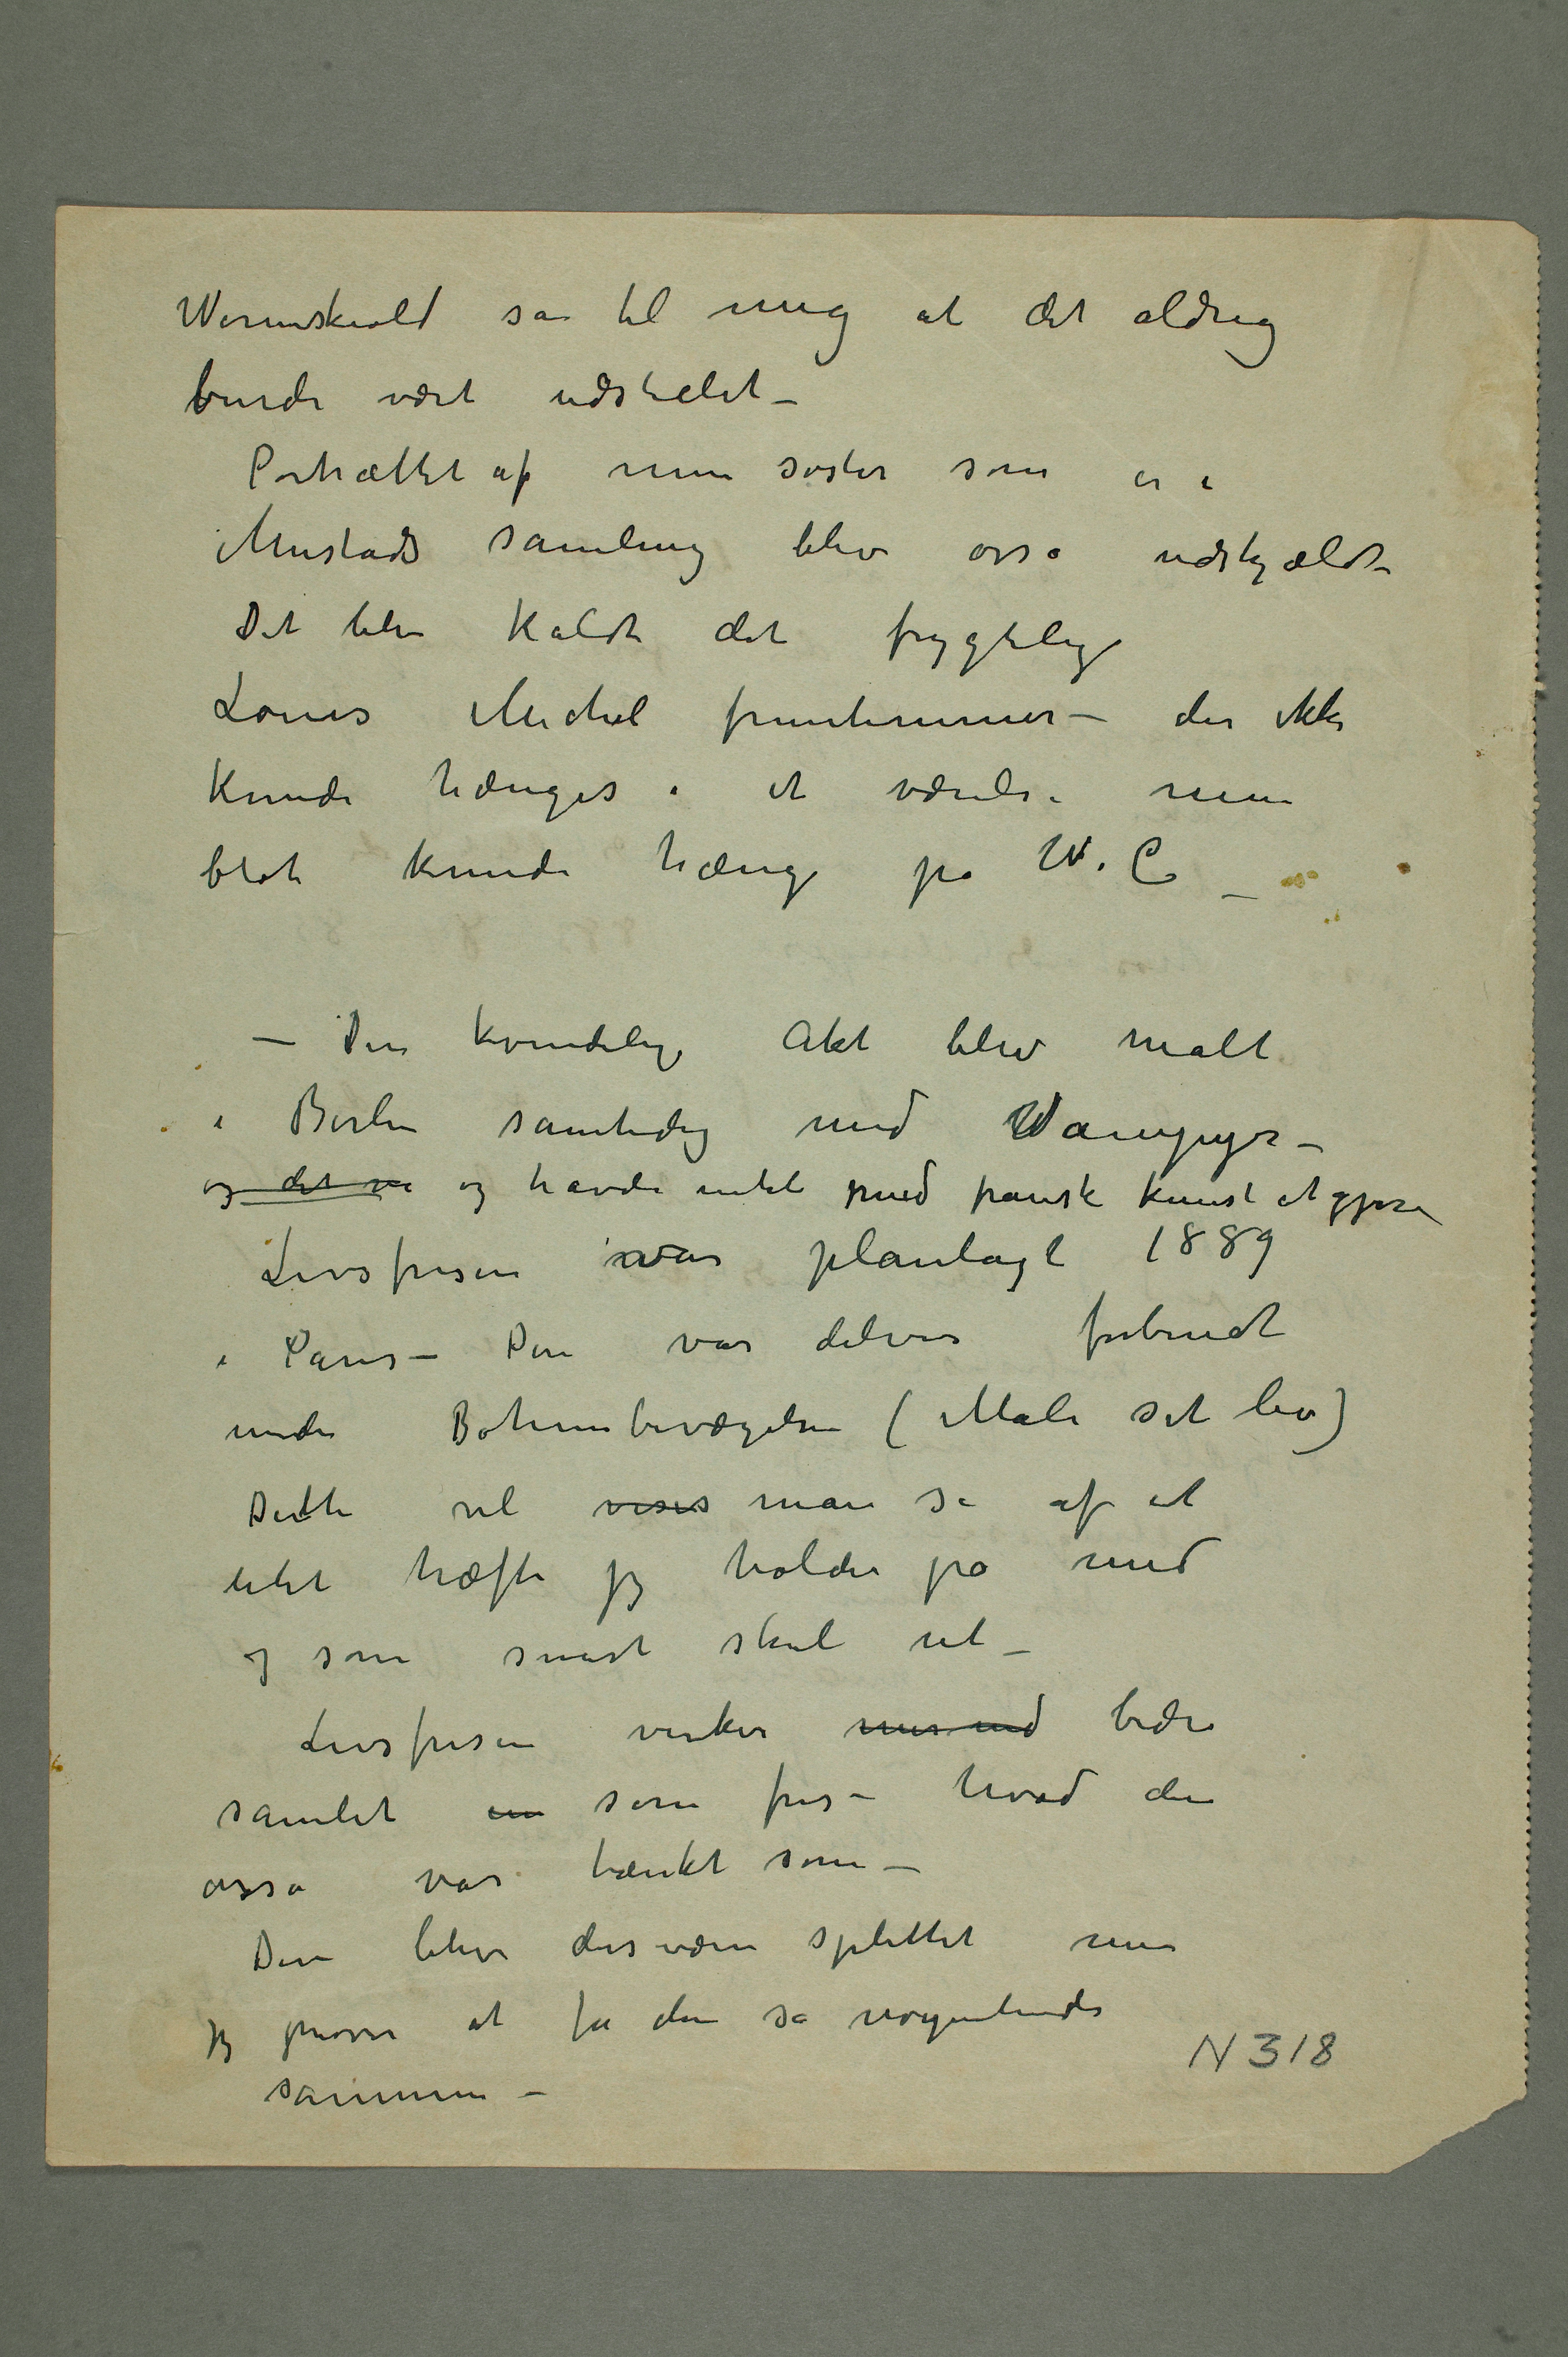 Wernskiold sa til mig at det aldrig
burde vært udstillet –
Portrættet af min søster som er i
Mustads samling blev også udskjældt –
Det blev kaldt det frygtelige
Louis Michel fruentimmer – der ikke
kunde hænges i et værelse men
blot kunde hænge på W. C –
– Den kvindelige Akt blev malt
i Berlin samtidig med Vampyr –
og det va og havde intet med fransk kunst at gjøre
Livsfrisen var planlagt 1889
i Paris – Den var delvis forbundet
under Bohembevægelsen (Male sit liv)
Dette vil vises man se af et
litet hæfte jeg holder på med
og som snart skal ut –
Livsfrisen virker bedre
samlet en som fris – hvad den
også var tænkt som –
Den blev desværre splittet men
jeg prøver at få den så nogenlunde
sammen –
N 318